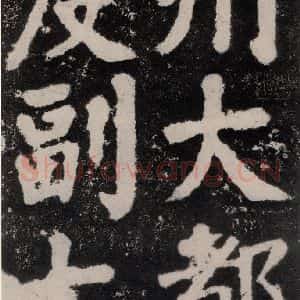 州大都
副
Shufawang.CN